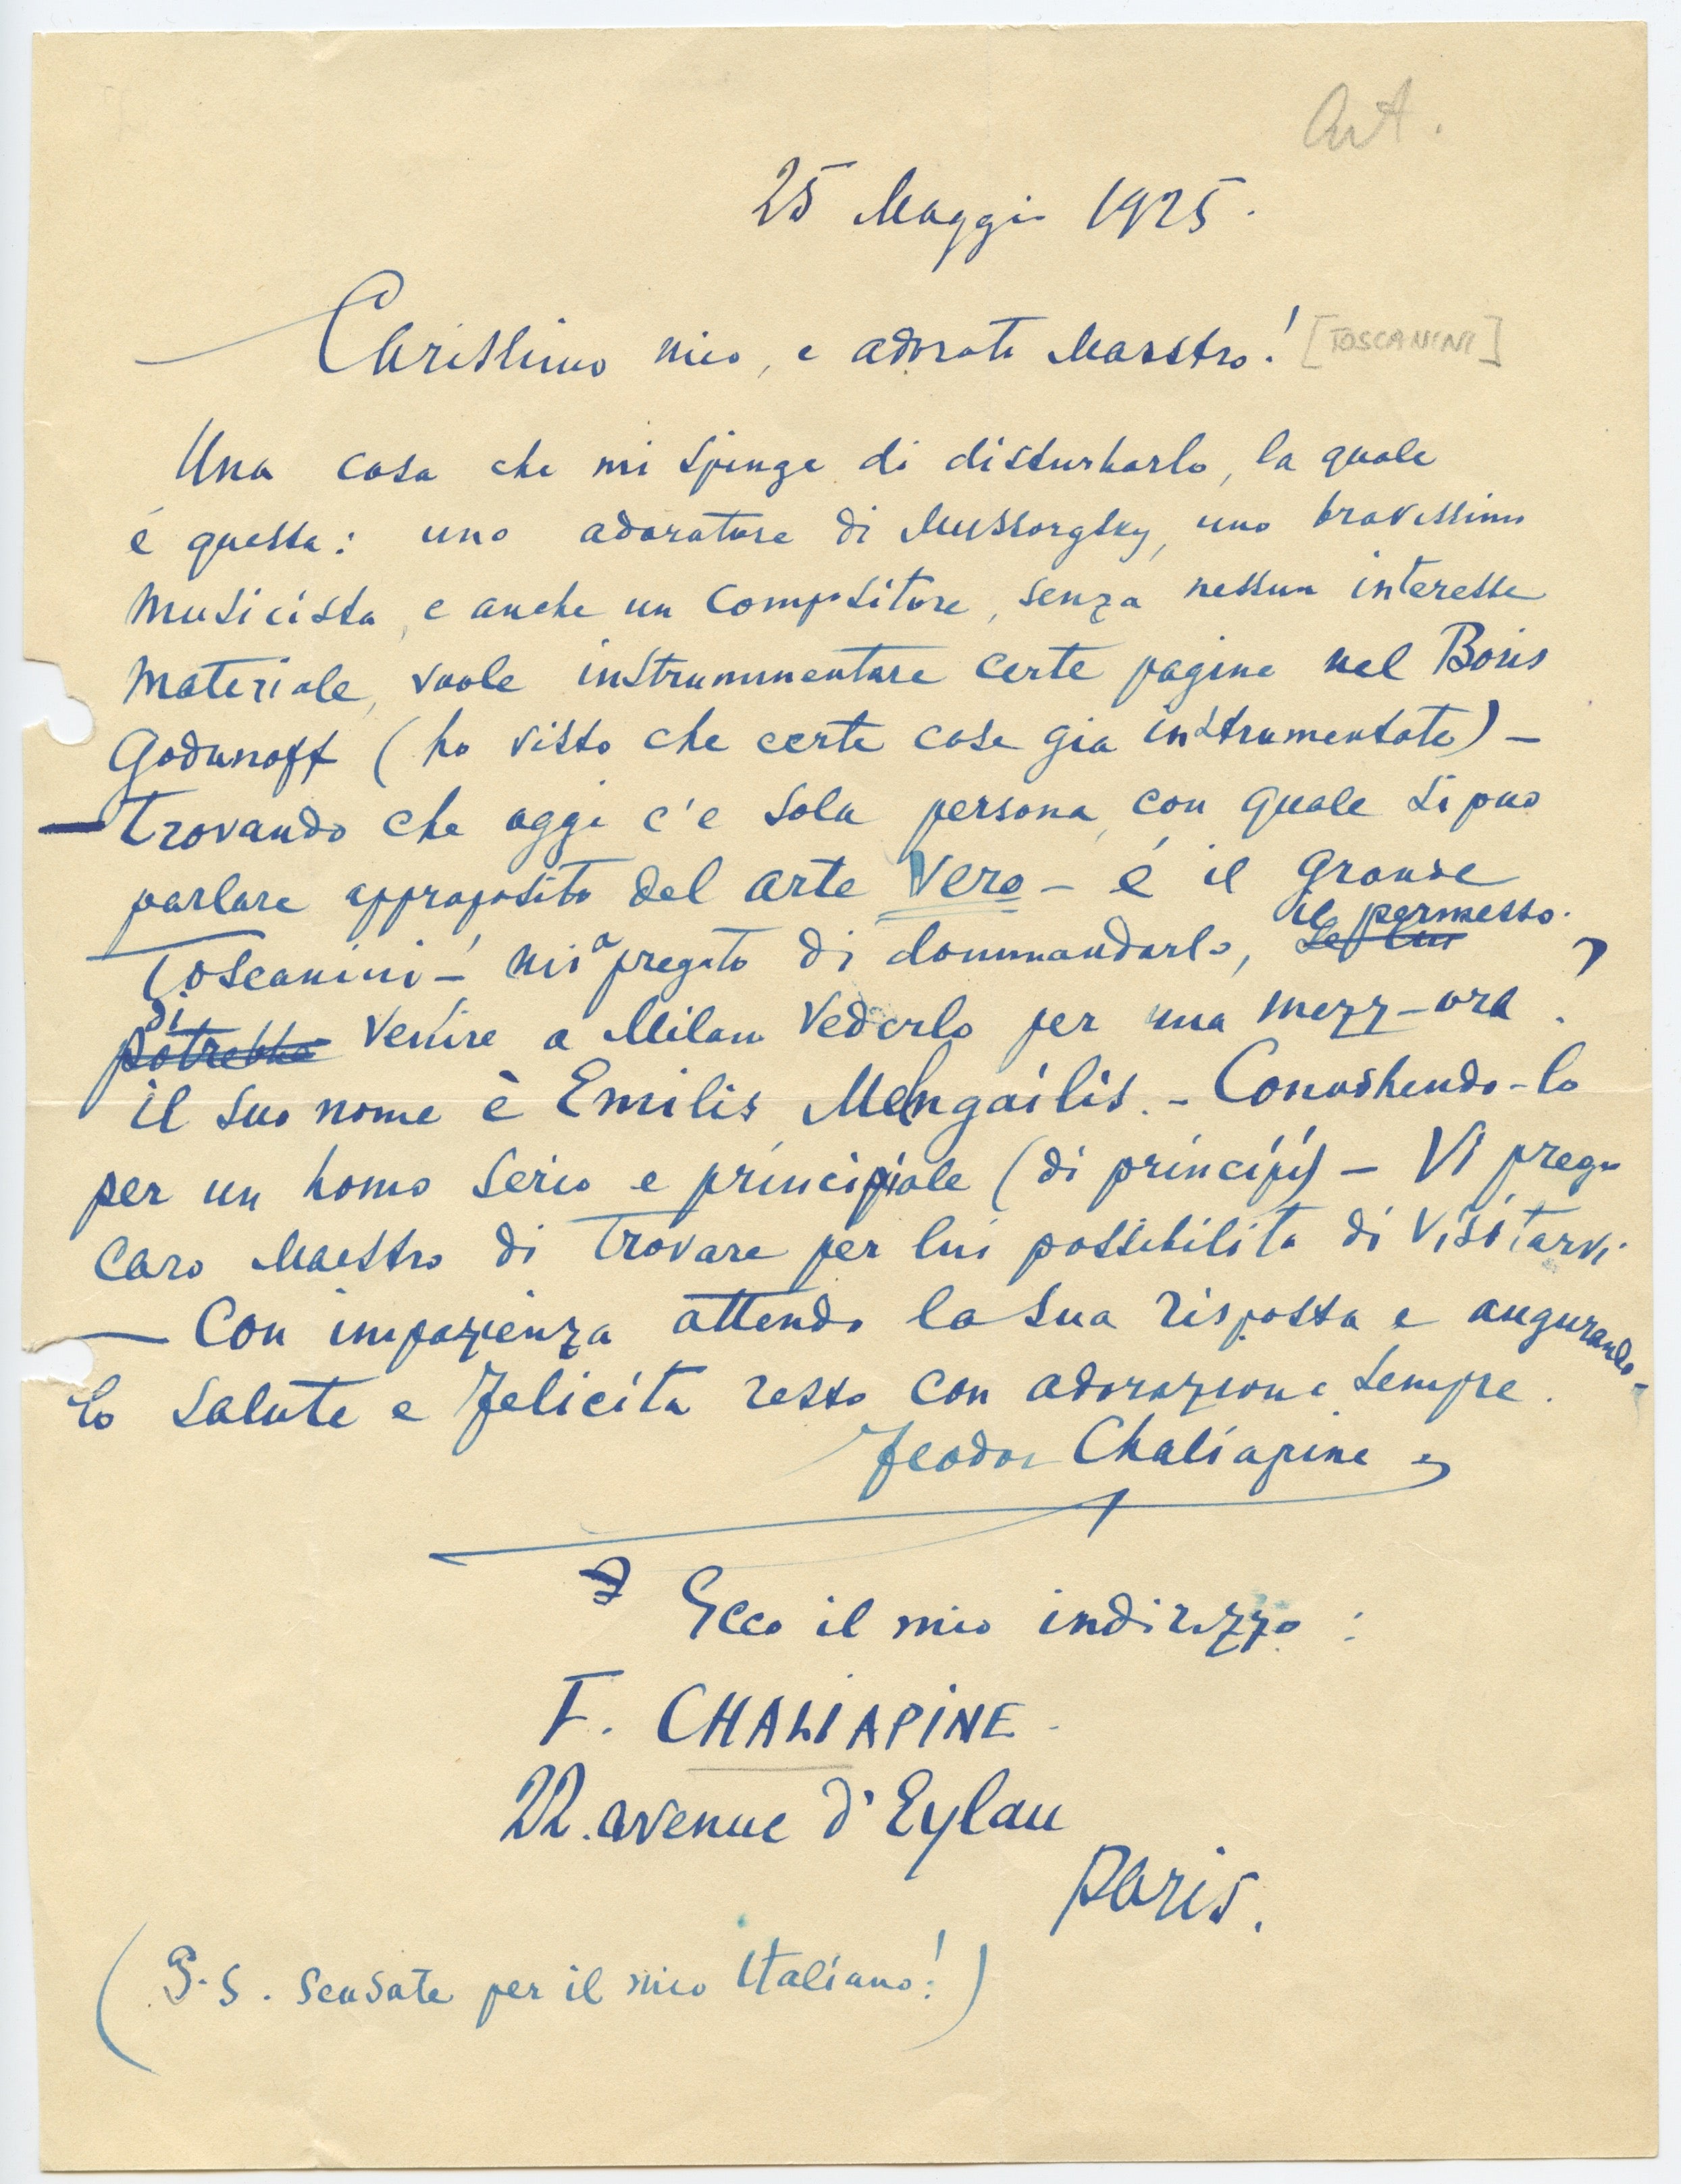 Art.
25 Maggio 1925.
Carissimo mio, e adorato Maestro! [TOSCANINI]
Una cosa che mi spinge di disturbarlo, la quale
é questa: uno adoratore di Mussorgsky, uno bravissimo
musicista, e anche un compositore, senza nessun interesse
materiale, vuole instrummentare certe pagine nel Boris
Godunoff (ho visto che certe cose gia instrumentate) —
— trovando che oggi c'e sola persona, con quale si puo
parlare approposito del arte vero — é il grande
Toscanini — mi a pregato di dommandarlo, il permesso
di venire a Milano vederlo per una mezz-ora?
il suo nome è Emilis Melngailis. — Conoshendo-lo
per un homo serio e principiale (di principii) — Vi prego
caro Maestro di trovare per lui possibilita di visitarvi.
— Con impazienza attendo la sua risposta e augurando-
lo salute e felicita resto con adorazione sempre.
Feodor Chaliapine
Ecco il mio indirizzo:
F. CHALIAPINE.
22. avenue d'Eylau
Paris.
(P.S. scusate per il mio Italiano!)